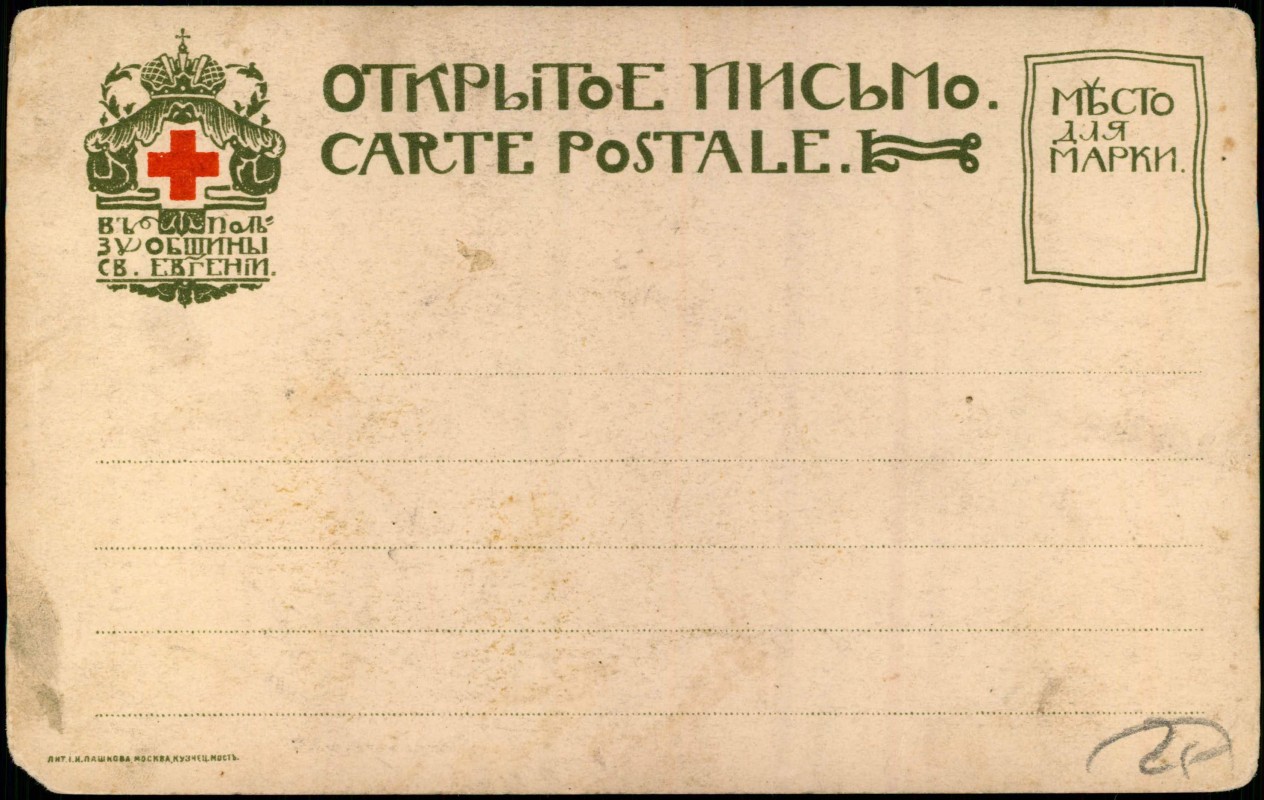 ОТКРЫТОЕ ПИСЬМО.
CARTE POSTALE.
МѢСТО
ДЛЯ
МАРКИ.
ВЪ ПОЛЬ-
ЗУ ОБЩИНЫ
СВ. ЕВГЕНІИ.
ЛИТ. І. И. ПАШКОВА МОСКВА, КУЗНЕЦ. МОСТЪ.